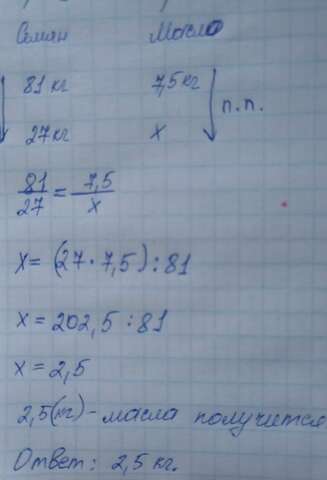 Семян Масло
81 кг 7,5 кг
27 кг x п.п.
81/27 = 7,5/x
x = (27 · 7,5) : 81
x = 202,5 : 81
x = 2,5
2,5 (кг) - масла получится
Ответ: 2,5 кг.